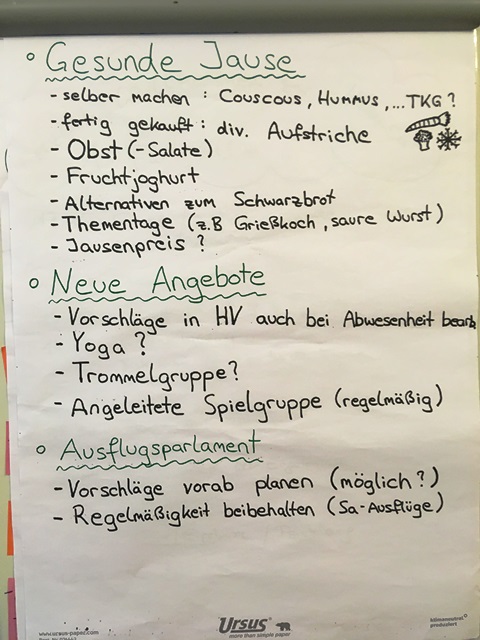 Gesunde Jause
- selber machen : Couscous, Hummus, ...TKG ?
- fertig gekauft : div. Aufstriche
- Obst (-Salate)
- Fruchtjoghurt
- Alternativen zum Schwarzbrot
- Thementage (z.B Grießkoch, saure Wurst)
- Jausenpreis ?
Neue Angebote
- Vorschläge in HV auch bei Abwesenheit bearb.
- Yoga ?
- Trommelgruppe?
- Angeleitete Spielgruppe (regelmäßig)
Ausflugsparlament
- Vorschläge vorab planen (möglich?)
- Regelmäßigkeit beibehalten (Sa-Ausflüge)
www.ursus-paper.com
Ursus
more than simple paper
klimaneutral
produziert